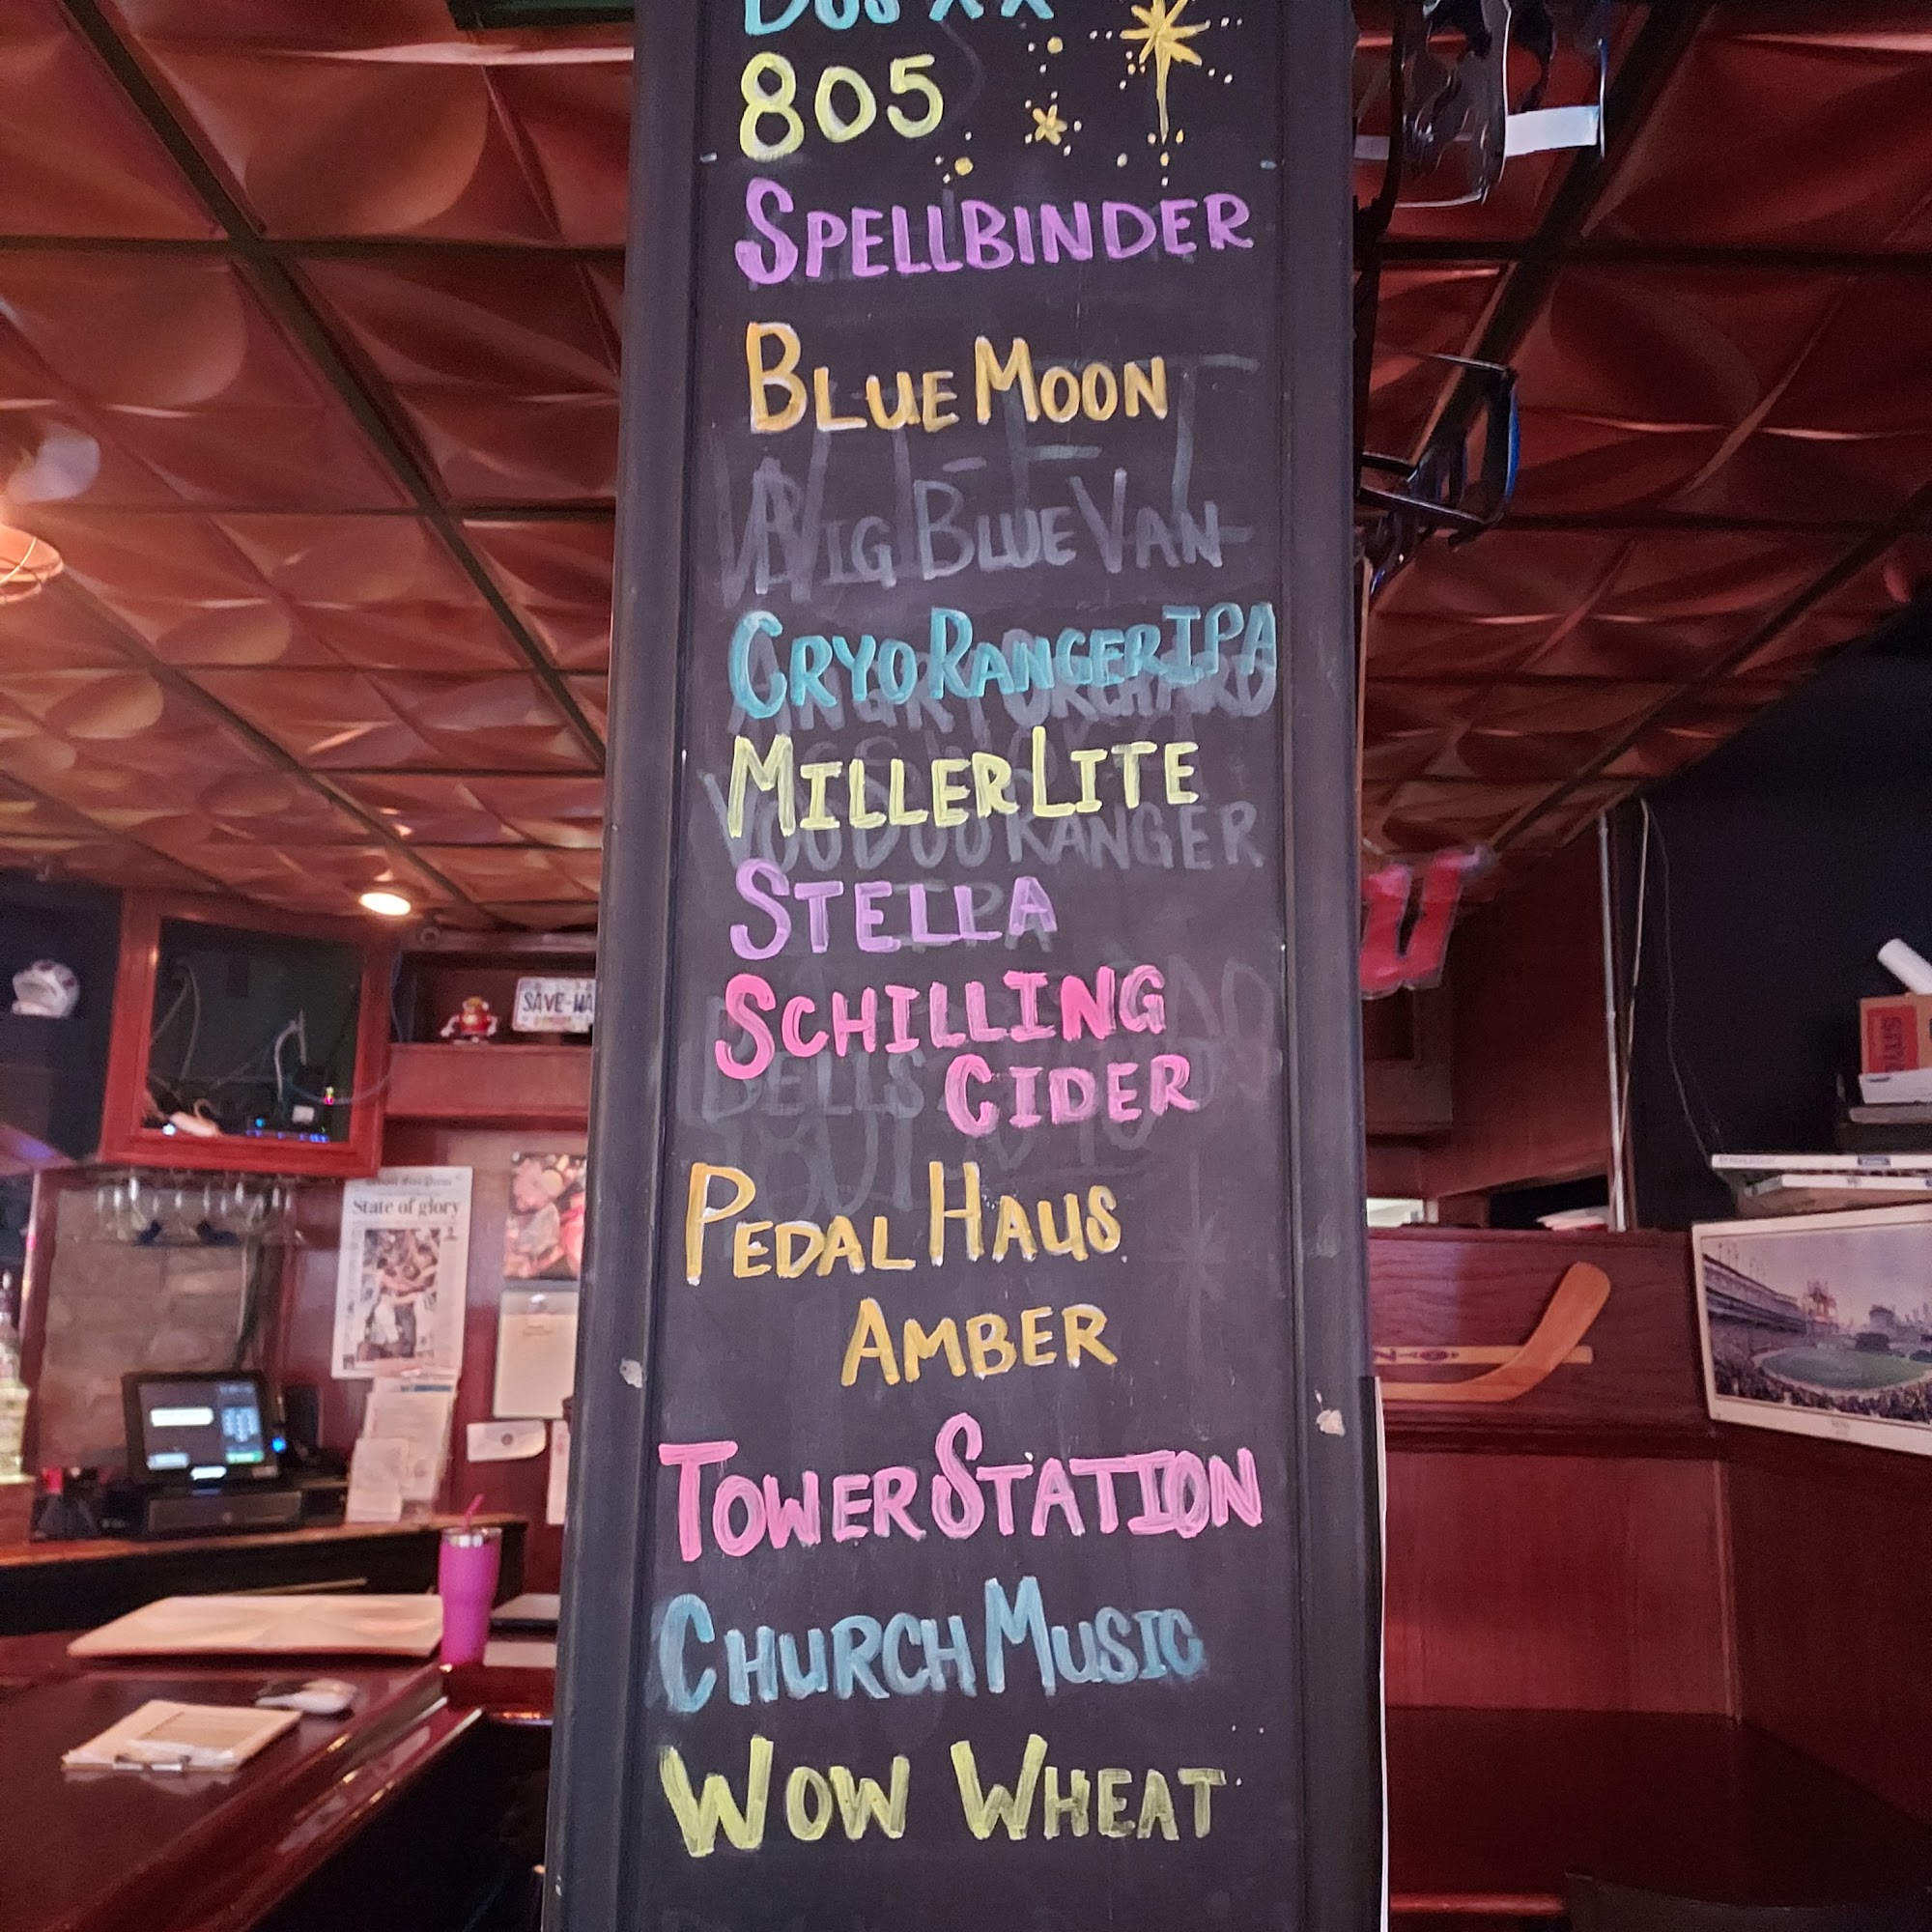 DOS XX
805
SPELLBINDER
BLUE MOON
BIG BLUE VAN
CRYO RANGER IPA
ANGRY ORCHARD
MILLER LITE
VOODOO RANGER
IPA
STELLA
SCHILLING
CIDER
BELLS
PEDAL HAUS
AMBER
TOWER STATION
CHURCH MUSIC
WOW WHEAT
SAVE-WA
State of glory
U